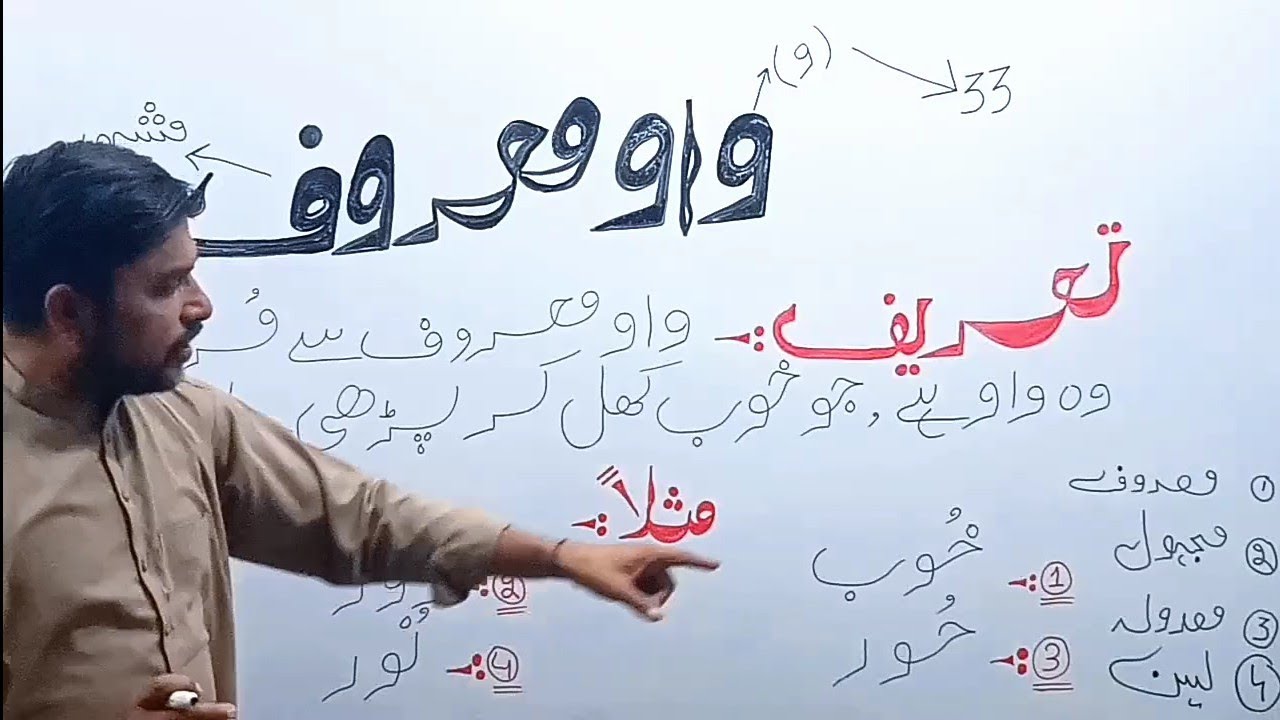 (و)
33
واو معروف
تعریف :- واو معروف سے
وہ واو ہے، جو خوب کھل کر پڑھی
مثلاً :-
① معروف
② مجہول
③ معدولہ
④ لین
① :- خُوب
② :-
③ :- حُور
④ :- نُور